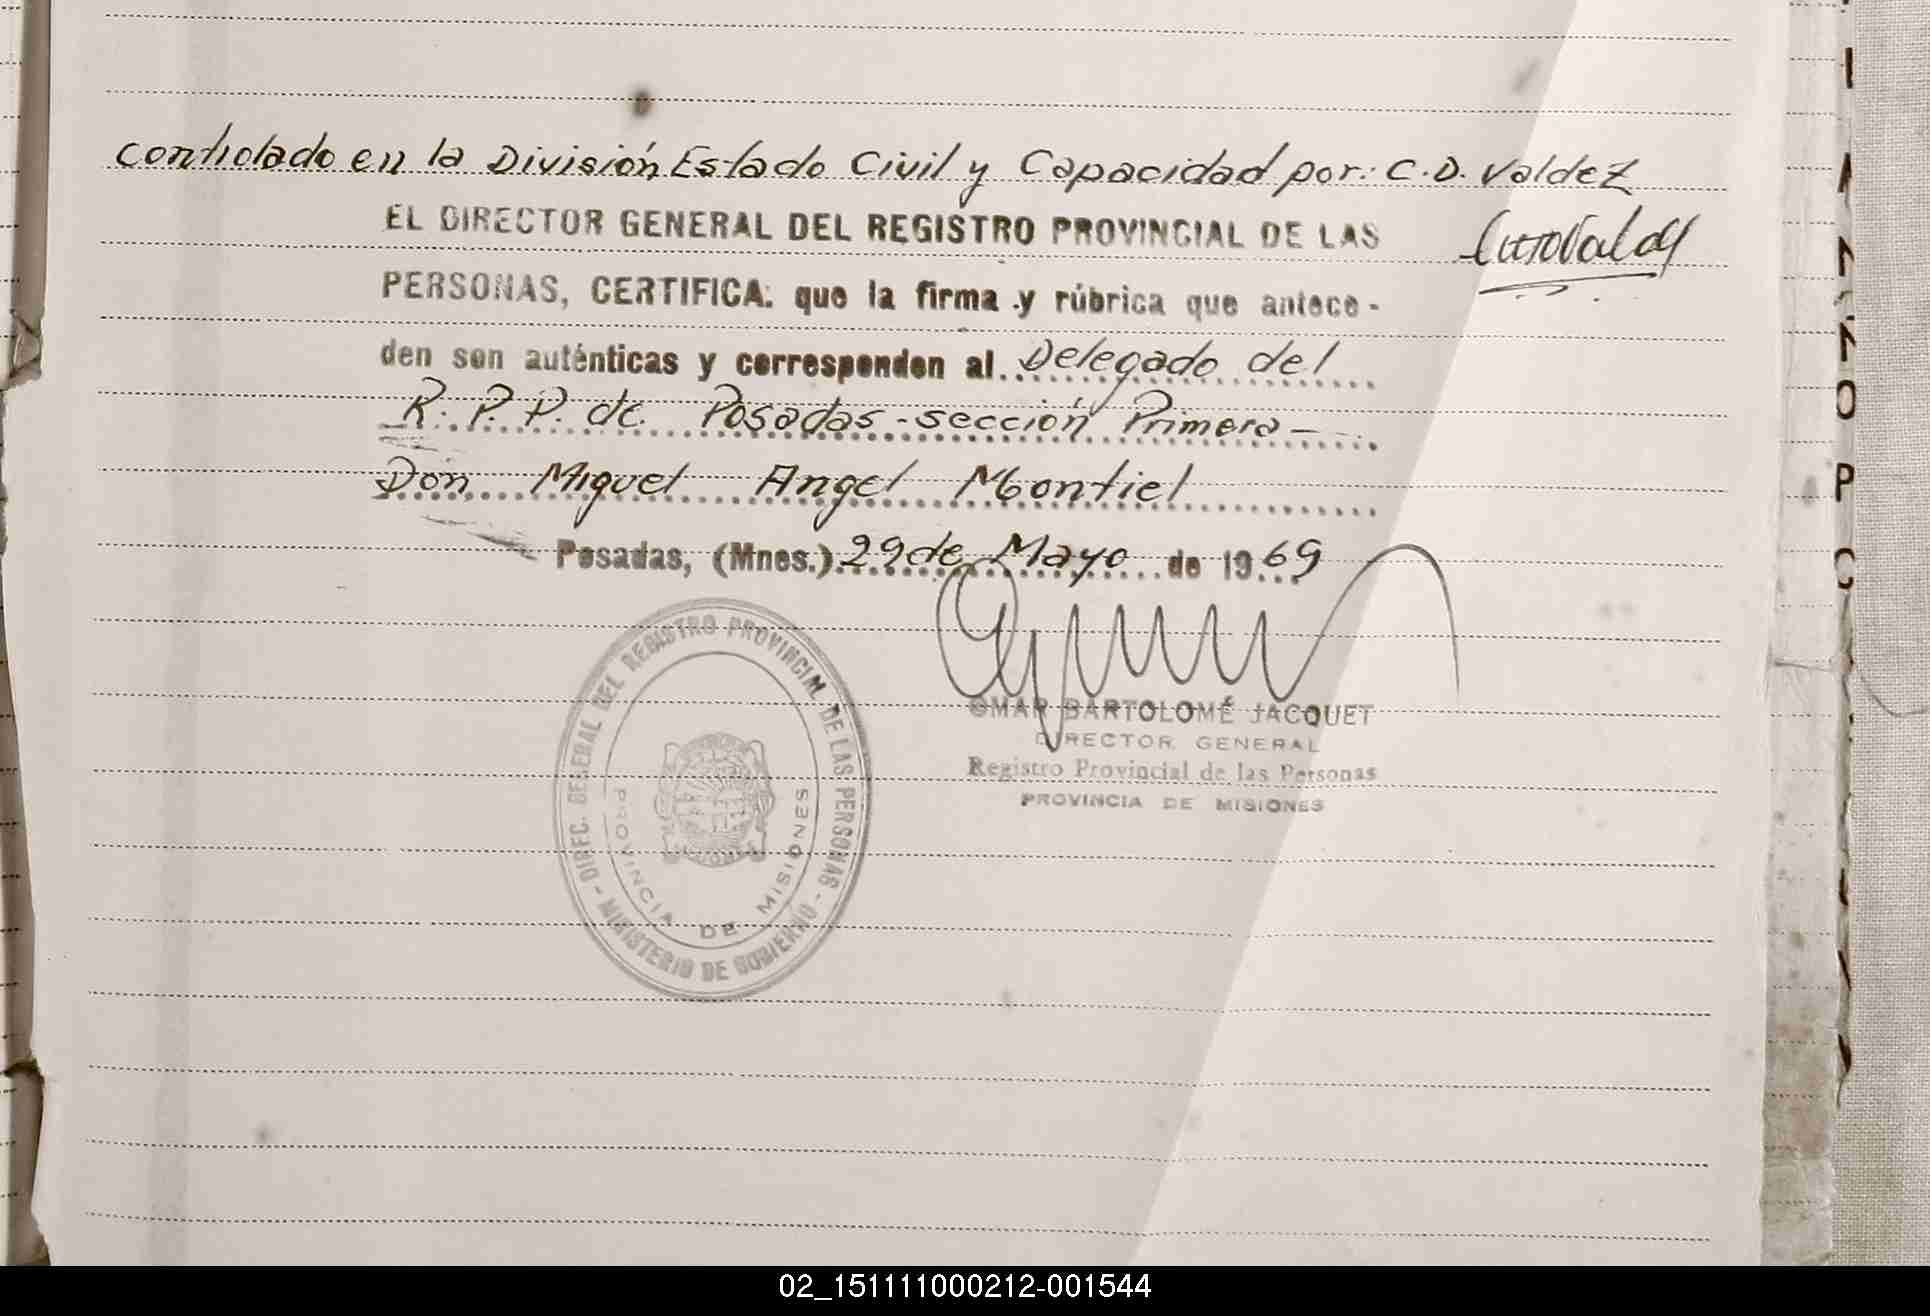 Controlado en la División Estado Civil y Capacidad por: C.D. Valdez
EL DIRECTOR GENERAL DEL REGISTRO PROVINCIAL DE LAS
PERSONAS, CERTIFICA: que la firma y rúbrica que antece-
den son auténticas y corresponden al Delegado del
R. P. P. de Posadas - sección Primera -
Don Miguel Angel Montiel
Posadas, (Mnes.) 29 de Mayo de 1969
OMAR BARTOLOMÉ JACQUET
DIRECTOR GENERAL
Registro Provincial de las Personas
PROVINCIA DE MISIONES
DIREC. GENERAL DEL REGISTRO PROVINCIAL DE LAS PERSONAS
- MINISTERIO DE GOBIERNO -
PROVINCIA DE MISIONES
02_151111000212-001544